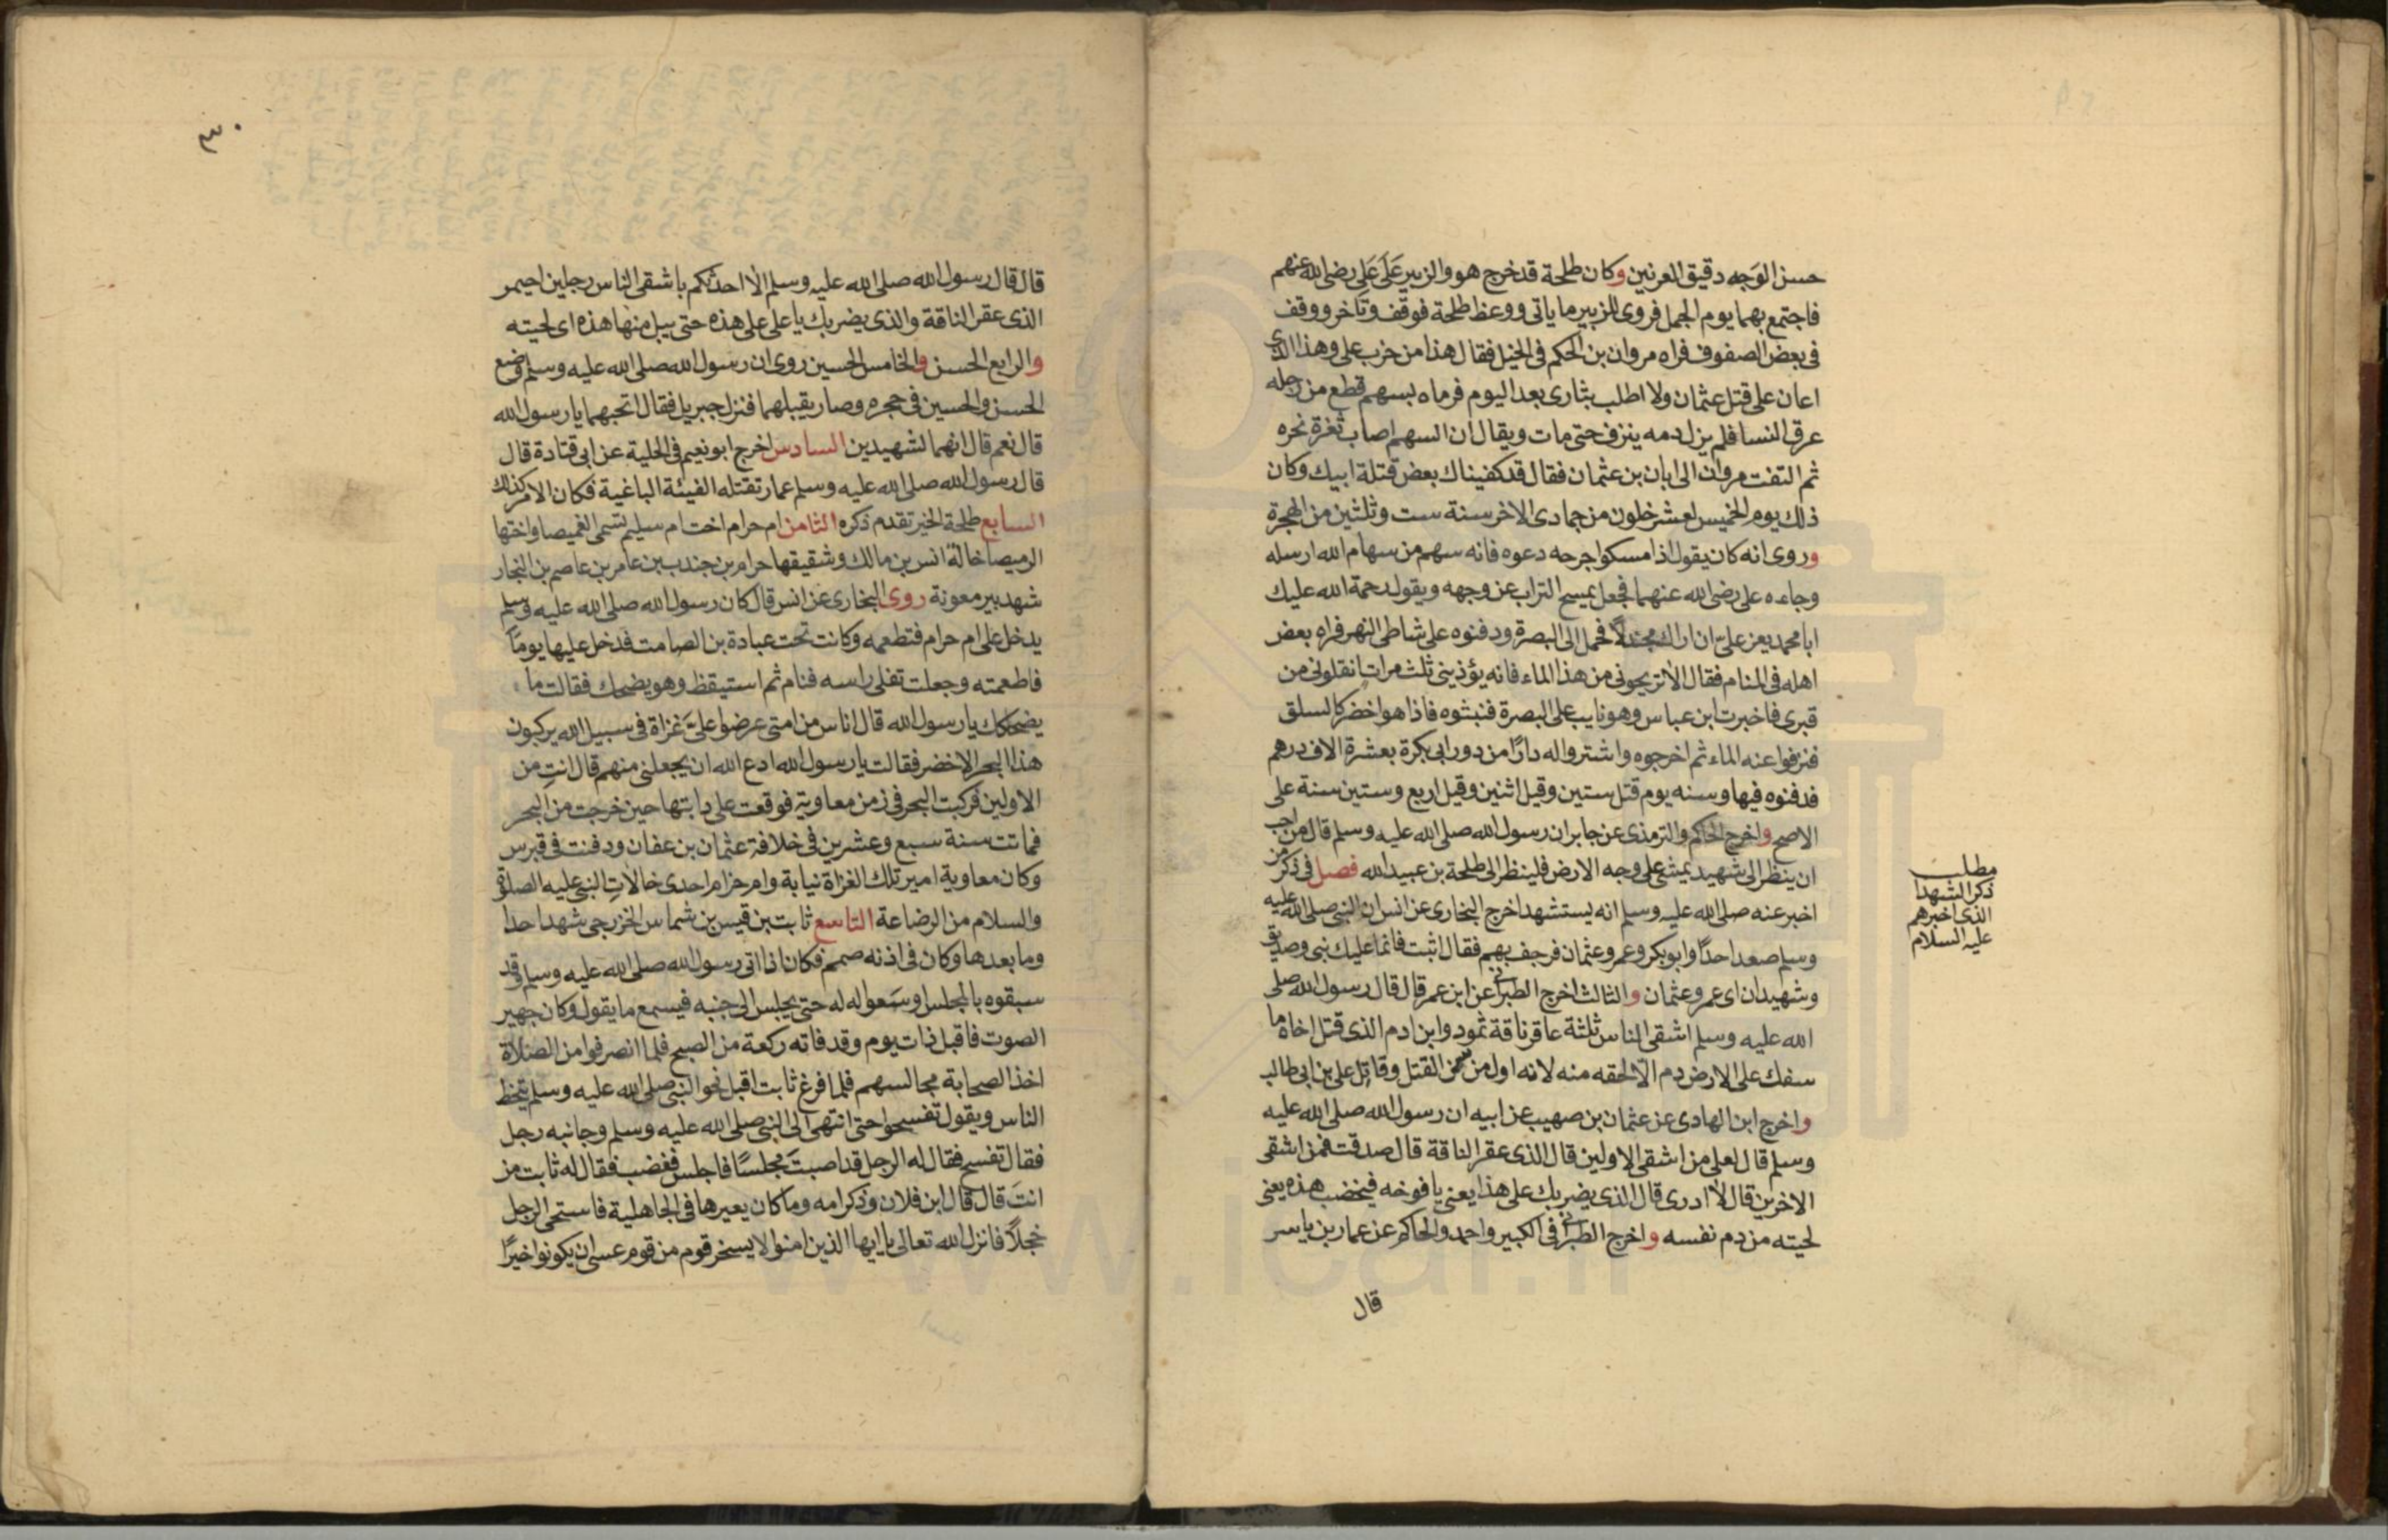 حسن الوَجه دقيق العرنين وكان طلحة قد خرج هو والزبير عَلَى عَلِي رضى الله عنهم
فاجتمع بهما يوم الجمل فروى للزبير ما ياتى ووعظ طلحة فوقف وتاخر ووقف
فى بعض الصفوف فراه مروان بن الحكم فى الخيل فقال هذا من حزب على وهذا الذى
اعان على قتل عثمان ولا اطلب بثارى بعد اليوم فرماه بسهم قطع من رجله
عرق النسا فلم يزل دمه ينزف حتى مات ويقال ان السهم اصاب ثغرة نحره
ثم التفت مروان الى ابان بن عثمان فقال قد كفيناك بعض قتلة ابيك وكان
ذلك يوم الخميس لعشر خلون من جمادى الاخر سنة ست وثلثين من الهجرة
وروى انه كان يقول اذا مسكوا جرحه دعوه فانه سهم من سهام الله ارسله
وجاءه على رضى الله عنهما فجعل يمسح التراب عن وجهه ويقول رحمة الله عليك
ابا محمد يعز علىّ ان اراك مجندلاً فحمل الى البصرة ودفنوه على شاطى النهر فراه بعض
اهله فى المنام فقال الا تريحونى من هذا الماء فانه يؤذينى ثلث مرات انقلونى من
قبرى فاخبرت ابن عباس وهو نايب على البصرة فنبشوه فاذا هو اخضر كالسلق
فنزفوا عنه الماء ثم اخرجوه واشتروا له دارًا من دور ابى بكرة بعشرة الاف درهم
فدفنوه فيها وسنه يوم قتل ستين وقيل اثنين وقيل اربع وستين سنة على
الاصح واخرج الحاكم والترمذى عن جابر ان رسول الله صلى الله عليه وسلم قال من احب
ان ينظر الى شهيد يمشى على وجه الارض فلينظر الى طلحة بن عبيد الله فصل فى ذكر من
اخبر عنه صلى الله عليه وسلم انه يستشهد اخرج البخارى عن انس ان النبى صلى الله عليه
وسلم صعد احدًا وابو بكر وعمر وعثمان فرجف بهم فقال اثبت فانما عليك نبى وصديق
وشهيدان اى عمر وعثمان والثالث اخرج الطبرانى عن ابن عمر قال قال رسول الله صلى
الله عليه وسلم اشقى الناس ثلثة عاقر ناقة ثمود وابن ادم الذى قتل اخاه ما
سفك على الارض دم الّا لحقه منه لانه اول من سن القتل وقاتِل على بن ابى طالب
واخرج ابن الهادى عن عثمان بن صهيب عن ابيه ان رسول الله صلى الله عليه
وسلم قال لعلى من اشقى الاولين قال الذى عقر الناقة قال صدقت فمن اشقى
الاخرين قال لا ادرى قال الذى يضربك على هذا يعنى يافوخه فيخضب هذه يعنى
لحيته من دم نفسه واخرج الطبرانى فى الكبير واحمد والحاكم عن عمار بن ياسر
قال
مطلب
ذكر الشهدا
الذى اخبرهم
عليه السلام
٣٠
قال قال رسول الله صلى الله عليه وسلم الا احدثكم باشقى الناس رجلين احيمر
الذى عقر الناقة والذى يضربك يا على على هذه حتى يبل منها هذه اى لحيته
والرابع الحسن والخامس الحسين روى ان رسول الله صلى الله عليه وسلم وضع
الحسن والحسين فى حجره وصار يقبلهما فنزل جبريل فقال اتحبهما يا رسول الله
قال نعم قال انهما لشهيدين السادس اخرج ابو نعيم فى الحلية عن ابى قتادة قال
قال رسول الله صلى الله عليه وسلم عمار تقتله الفيئة الباغية فكان الامر كذلك
السابع طلحة الخير تقدم ذكره الثامن ام حرام اخت ام سليم تسمى الغميصا واختها
الرميصا خالة انس بن مالك وشقيقها حرام بن جندب بن عامر بن عاصم بن النجار
شهد بير معونة روى البخارى عن انس قال كان رسول الله صلى الله عليه وسلم
يدخل على ام حرام فتطعمه وكانت تحت عبادة بن الصامت فدخل عليها يومًا
فاطعمته وجعلت تفلى راسه فنام ثم استيقظ وهو يضحك فقالت ما
يضحكك يا رسول الله قال اناس من امتى عرضوا علىَّ غزاة فى سبيل الله يركبون
هذا البحر الاخضر فقالت يا رسول الله ادع الله ان يجعلنى منهم قال انتِ من
الاولين فركبت البحر فى زمن معاوية فوقعت على دابتها حين خرجت من البحر
فماتت سنة سبع وعشرين فى خلافة عثمان بن عفان ودفنت فى قبرس
وكان معاوية امير تلك الغزاة نيابة وام حزام احدى خالاتِ النبى عليه الصلوة
والسلام من الرضاعة التاسع ثابت بن قيس بن شماس الخزرجى شهد احدا
وما بعدها وكان فى اذنه صمم فكان اذا اتى رسول الله صلى الله عليه وسلم وقد
سبقوه بالمجلس اوسَعوا له له حتى يجلس الى جنبه فيسمع ما يقول وكان جهير
الصوت فاقبل ذات يوم وقد فاته ركعة من الصبح فلما انصرفوا من الصلاة
اخذ الصحابة مجالسهم فلما فرغ ثابت اقبل نحو النبى صلى الله عليه وسلم يتخط
الناس ويقول تفسحوا حتى انتهى الى النبى صلى الله عليه وسلم وجانبه رجل
فقال تفسح فقال له الرجل قد اصبتَ مجلسًا فاجلس فغضب فقال له ثابت من
انتَ قال قال ابن فلان وذكر امه وما كان يعيرها فى الجاهلية فاستحى الرجل
خجلاً فانزل الله تعالى يا ايها الذين امنوا لا يسخر قوم من قوم عسى ان يكونوا خيرًا
www.icar.ir